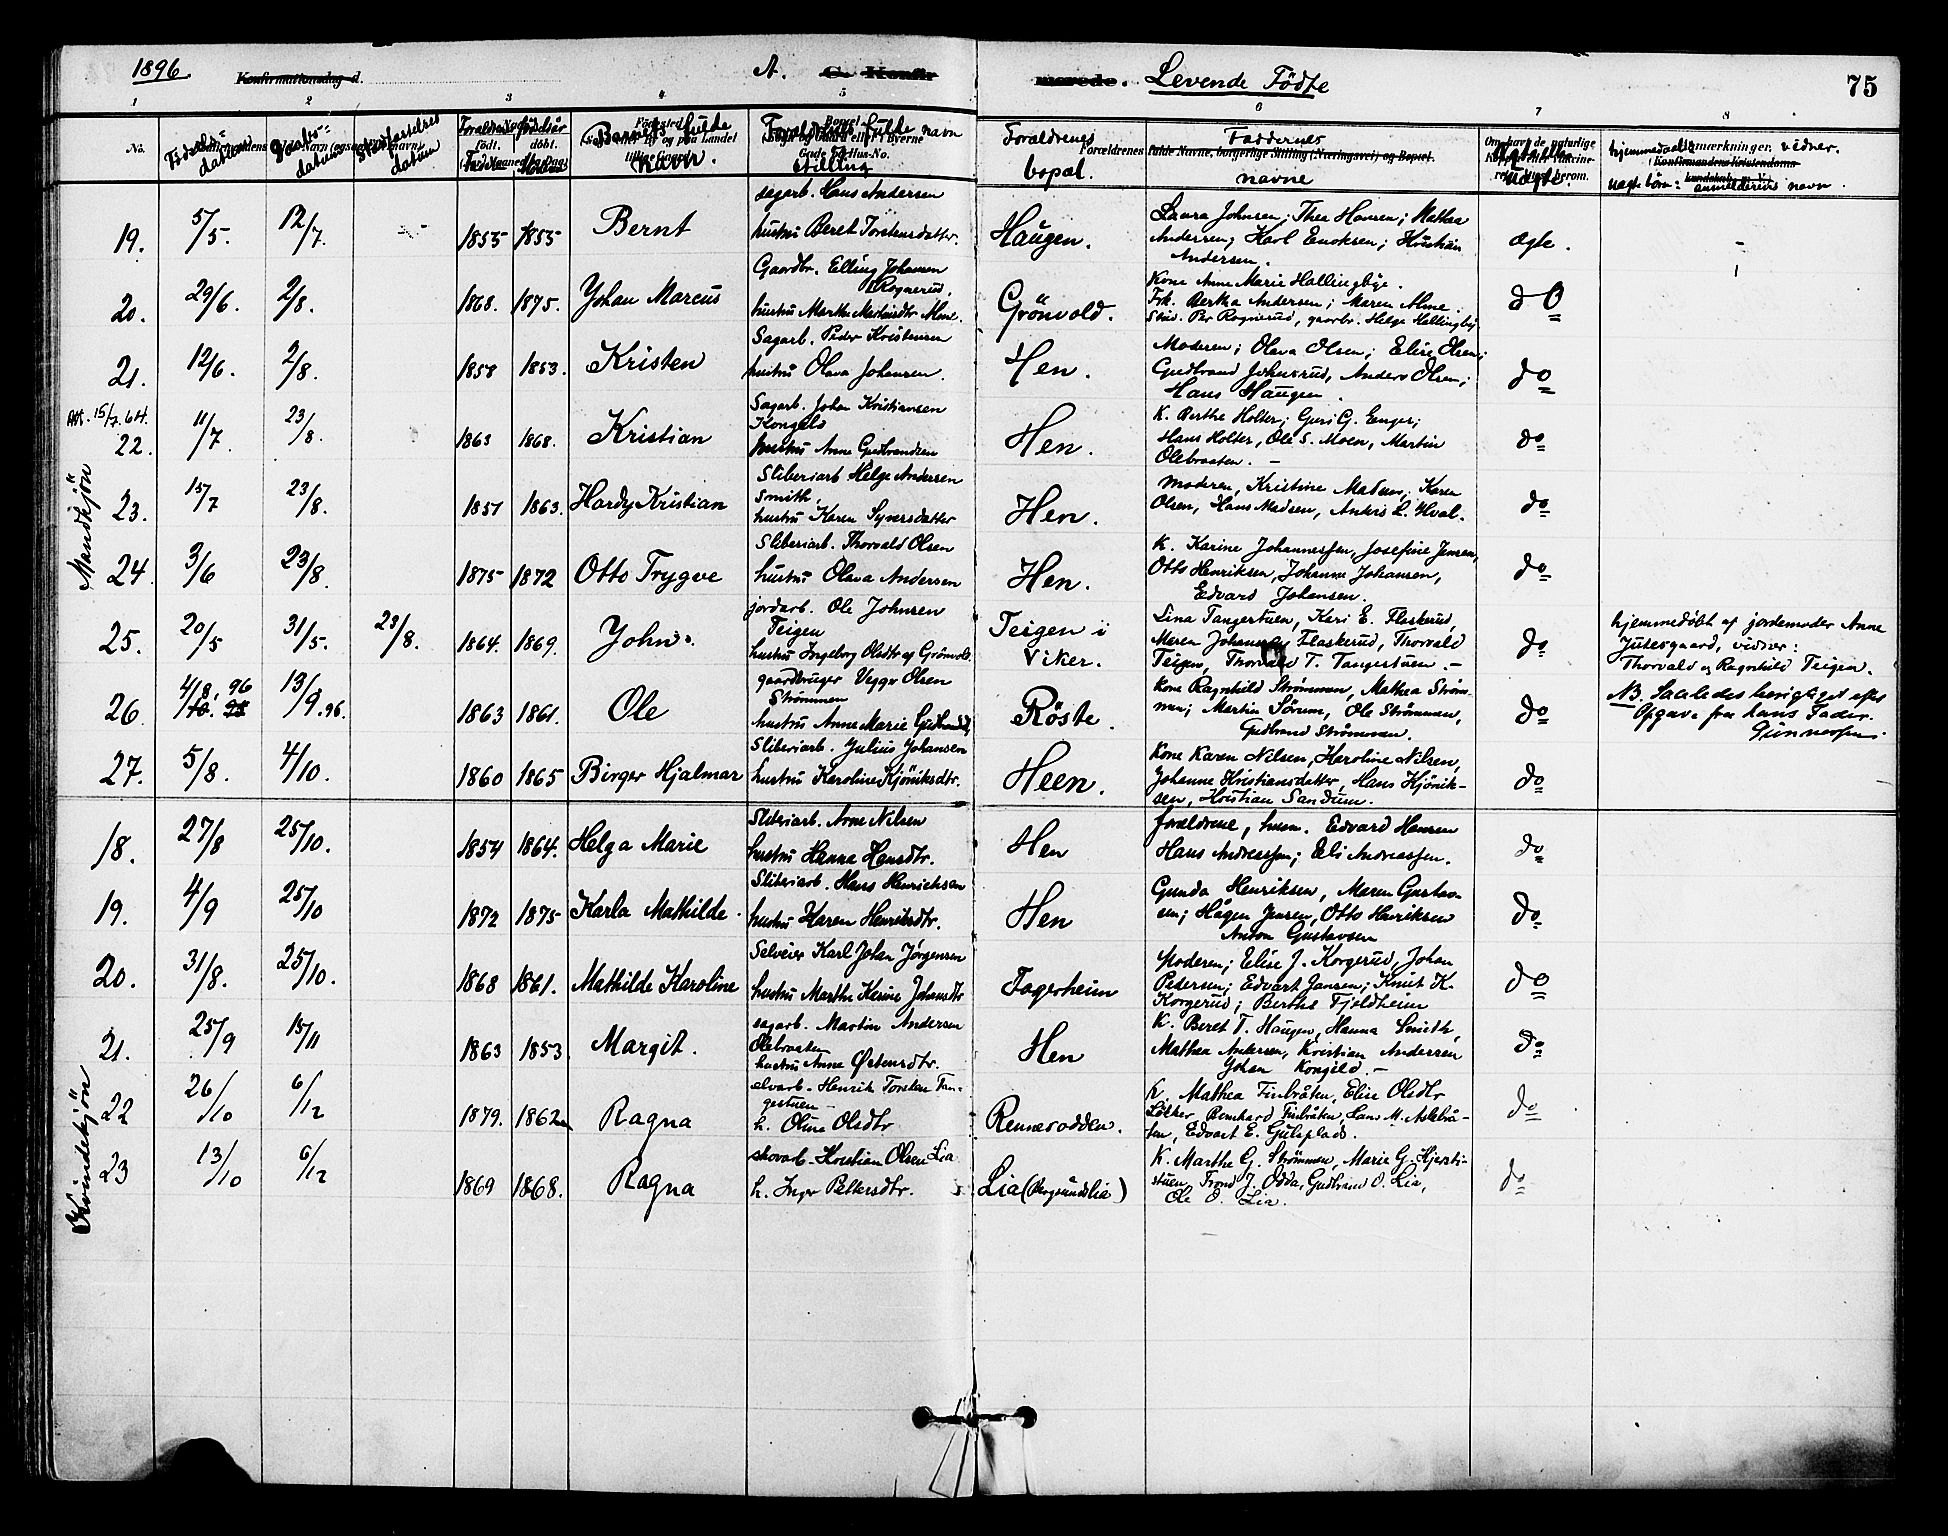 1896. Konfirmationsdag d. A. C. Konfirmerede. Levende Födte 75
1 2 3 4 5 6 7 8
No. Fødsels-datum Daabs-datum Stadfæstelses datum Forældrenes fødselsaar Barnets fulde navn Forældrenes fulde navn Stilling Forældrenes bopæl. Faddernes navne
hjemmedøbte vidner.
uægte börn: anmelderens navn.
Mandkjön
sagarb. Hans Andersen
19. 5/5. 12/7. 1855 1855 Bernt hustru Beret Torstensdatter. Haugen. Laura Johnsen; Thea Hansen; Mathea
Andersen; Karl Enoksen; Kristian ægte.
Andersen.
Gaardbr. Elling Johansen
Rognerud, Kone Anne Marie Hallingbye.
20. 29/6. 2/8. 1868. 1875. Johan Marcus hustru Marthe Mathisdtr Alme. Grönvold. Frk. Bertha Andersen; Maren Alme. do
Stud. Per Rognerud, gaarbr. Helge Hallingby.
Sagarb. Peder Kristensen
21. 12/6. 2/8. 1858 1853. Kristen hustru Olava Johansen. Hen. Moderen; Olava Olsen; Elise Olsen;
Gudbrand Johnsrud, Anders Olsen; do
Hans Haugen.
Att. 15/7.64. Sagarb. Johan Kristiansen
Kongeld
22. 11/7. 23/8. 1863 1868. Kristian hustru Anne Gudbrandsen Hen. K. Berthe Holter; Guri G. Enger;
Hans Holter, Ole S. Moen, Martin do
Olebraaten. -
Sliberiarb Helge Andersen
Smith,
23. 15/7 23/8. 1857 1863. Hardy Kristian hustru Karen Syversdatter Hen. Moderen, Kristine Madsen; Karen
Olsen, Hans Madsen, Anders L. Hval. do
Sliberiarb. Thorvald Olsen
24. 3/6 23/8. 1875 1872 Otto Trygve hustru Olava Andersen Hen. K. Karine Johannessen, Josefine Jensen,
Otto Henriksen, Johanne Johansen, do
Edvard Johansen.
jordarb. Ole Johnsen
Teigen
25. 20/5 31/5. 23/8. 1864. 1869. John. hustru Ingeborg Olsdtr af Grönvold Teigen i Viker. Lina Tangertuen, Kari E. Flaskerud,
Maren Johannsen Flaskerud, Thorvald do
Teigen, Thorvald T. Tangertuen. -
hjemmedöbt af jordemoder Anne
Juvesgaard, vidner:
Thorvald og Ragnhild Teigen.
gaardbruger Vegge Olsen
Strömmen
26. 4/8. 96 10. 95 13/9.96. 1863 1861. Ole hustru Anne Marie Gudbrandsd. Röste. Kone Ragnhild Strömmen, Mathea Ström-
men; Martin Sörum, Ole Strömmen, do
Gudbrand Strömmen.
NB. Saaledes berigtiget efter
Opgave fra hans Fader.
Gunnersen.
Sliberiarb. Julius Johansen
27. 5/8. 4/10. 1860 1865 Birger Hjalmar hustru Karoline Kjöniksdtr. Heen. Kone Karen Nilsen, Karoline Nilsen,
Johanne Kristiansdatter, Hans Kjönik- do
sen, Kristian Sandum.
Kvindekjön
Sliberiarb. Arne Nilsen
18. 27/8 25/10. 1854 1864. Helga Marie hustru Hanna Hansdtr. Hen forældrene, husm. Edvard Hansen
Hans Andreassen; Eli Andreassen. do
Sliberiarb. Hans Henriksen
19. 4/9 25/10 1872 1875 Karla Mathilde. hustru Karen Henriksdtr. Hen Gunda Henriksen, Maren Gustav-
sen; Hågen Jensen, Otto Henriksen do
Anton Gustavsen
Selveier Karl Johan Jörgensen
20. 31/8. 25/10. 1868 1861. Mathilde Karoline hustru Marthe Karine Johansdtr Fagerheim Moderen; Elise J. Korgerud, Johan
Petersen; Edvart Jansen; Knut K. do
Korgerud; Berthe Fjeldheim
sagarb. Martin Andersen
Olebraaten
21. 25/9 15/11 1863 1853. Margit. hustru Anne Östensdtr. Hen K. Beret T. Haugen, Hanna Smidth,
Mathea Andersen, Kristian Andersen do
Johan Kongeld. -
elvarb. Henrik Torsten Tan-
gestuen -
22 26/10 6/12 1879. 1862 Ragna h. Oline Olsdtr Rennerodden. K. Mathea Finbråten, Elise Olsdtr
Löther, Bernhard Finbråten, Lars M. Askbrå- do
ten, Edvart E. Gulsplads.
skovarb. Kristian Olsen Lia
23 13/10 6/12 1869 1868. Ragna h. Inger Pettersdtr. Lia (Bergsundslia) K. Marthe G. Strömmen, Marie G. Hjersti-
stuen, Trond J. Odda, Gudbrand O. Lia, do
Ole O. Lia.